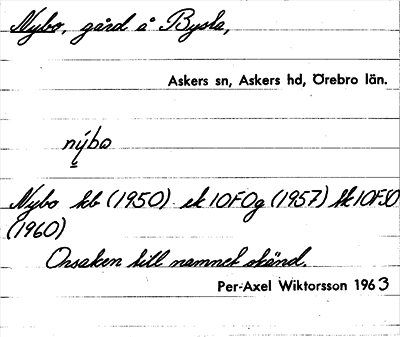 Nybo, gård å Bysta,
Askers sn, Askers hd, Örebro län.
nýbo
Nybo kb (1950) ek 10F0g (1957) sk 10F50
(1960)
Orsaken till namnet okänd.
Per-Axel Wiktorsson 1963